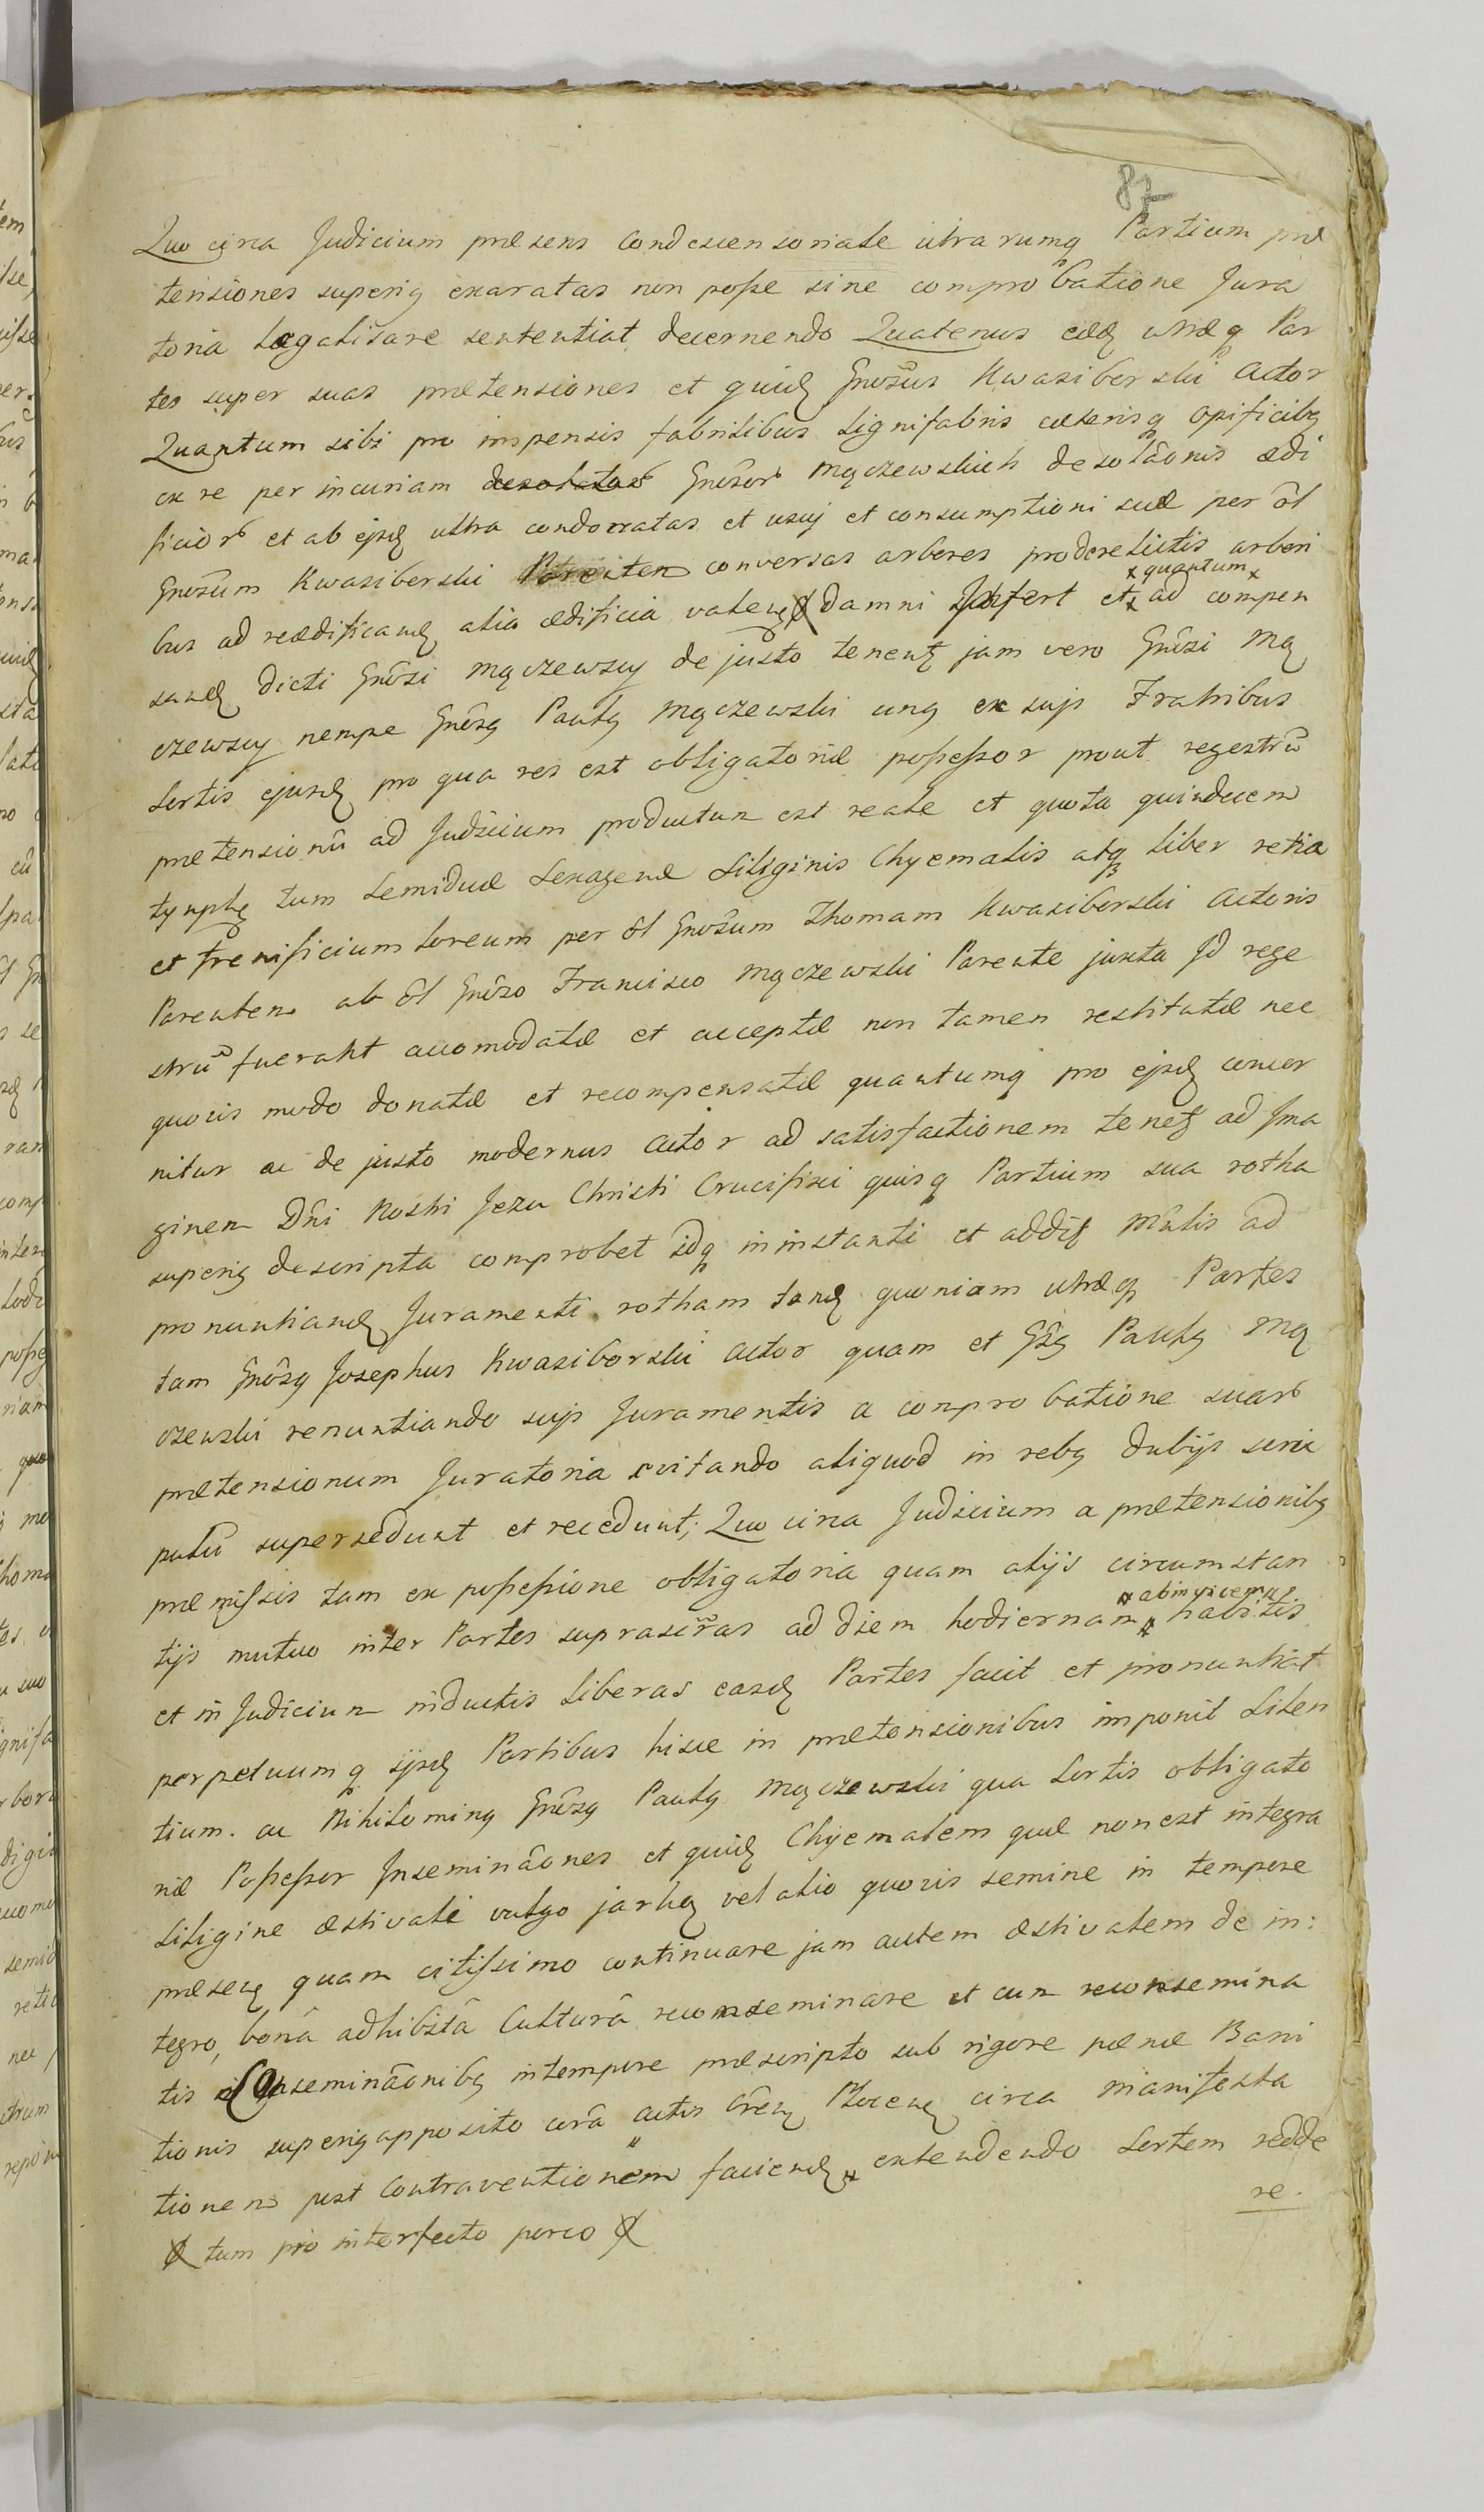 87
Quo circa Judicium præsens Condescensoriale utrarumq Partium præ
tensiones superiq exaratas non posse sine comprobatione Jura
toria legalisare sententiat decernendo Quatenus eædę utræq Par
tes super suas prætensiones et quidę Gnôsus Kwasiborski Actor
Quantum sibi pro impensis fabrilibus Lignifabris cæterisq Opificibꝫ
ex re per incuriam Gnôsor Mączewskich desolâonis ædi
ficiôr et ab ejsdę ultra condorratas et usuj et consumptioni suæ per ôl
Gnôsum Kwasiborski Parentem conversas arbores proderelictis arbori
bus ad reædificandę alia ædificia valenę damni infert et ad compen
x quantum x
sandę dicti Gnôsi Mączewscy de justo tenentę jam vero Gnôsi Mą
czewscy nempe Gnôsꝫ Paulꝫ Mączewski unꝫ ex sujs Fratribus
Sortis ejusdę pro qua res est obligatoriæ possessor prout regestrũ
prætensionũ ad Judicium productum est reale et quota quindecem
tynphꝫ tum Semiduæ Sexagenæ Siliginis Chyemalis atqꝫ liber retia
et frenificium loreum per ôl Gnôsum Thomam Kwasiborski Actoris
Parentem ab ôl Gnôso Francisco Mączewski Parente juxta Jd rege
strũ fuerant accomodatæ et acceptæ non tamen restitutæ nec
quovis modo donatæ et recompensatæ quantumq pro ejsdę concer
nitur ac de justo modernus Actor ad satisfactionem tenetꝫ ad Jma
ginem Dñi Nostri Jezu Christi Crucifixi quisq Partium sua rotha
superiq descripta comprobet idq in instanti et addiꝫ Mñlis ad
pronuntiandę Juramenti rotham tandę quoniam utræq Partes
tam Gnôsꝫ Josephus Kwasiborski Actor quam et Gsꝫ Paulꝫ Mą
czewski renuntiando sujs Juramentis a comprobatione suar
prætensionum Juratoria evitando aliquod in rebꝫ dubijs scru
pulũ supersedunt et recedunt; Quo circa Judicium a prætensionibꝫ
præmissis tam ex possessione obligatoria quam alijs circumstan
tijs mutuo inter Partes suprascr̃as ad diem hodiernam habitis
abinvicem
et in Judicium inductis liberas easdę Partes facit et pronuntiat
perpetuumq ijsdę Partibus hisce in prætensionibus imponit Silen
tium. ac Nihilominꝫ Gnôsꝫ Paulꝫ Mączewski qua Sortis obligato
riæ Possessor Inseminâones et quidę Chyemalem quæ non est integra
Siligine æstivali vulgo jarką vel alio quovis semine in tempore
præsenꝫ quam citissimo continuare jam autem æstivalem de in:
tegro, bonâ adhibitâ Culturâ reconseminare et cum reconsemina
tis inseminâonibꝫ in tempore præscripto sub rigore pænæ Banni
tionis superiq apposito corâ Actis Crẽnꝫ Plocenꝫ circa manifesta
tionem post Contraventionem faciendę extendendo Sortem redde
re.
tum pro interfecto porco